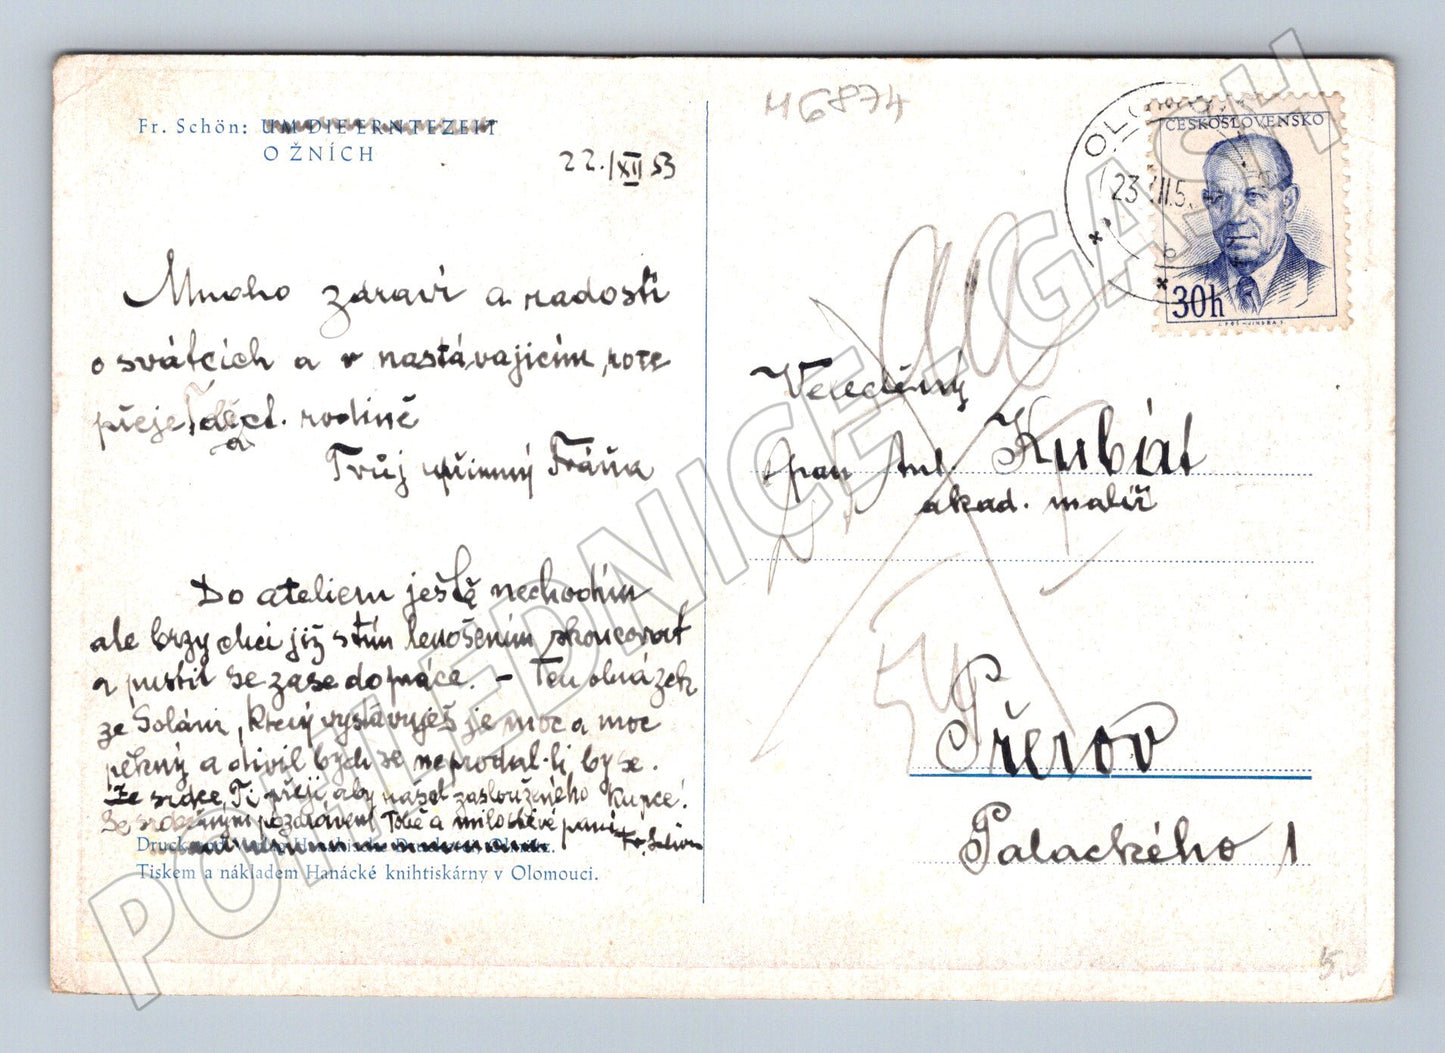 Fr. Schön: UM DIE ERNTEZEIT
O ŽNÍCH
22./XII 53
Mnoho zdraví a radosti
o svátcích a v nastávajícím roce
přeje i ct. rodině
Tvůj upřímný Fráňa
Do ateliem ještě nechodím
ale brzy chci již s tím lenošením skoncovat
a pustit se zase do práce. – Ten obrázek
ze Soláni, který vystavuješ je moc a moc
pěkný a divil bych se neprodal-li by se.
Ze srdce Ti přeji aby našel zaslouženého kupce!
Se srdečným pozdravem Tobě a milostivé paní Fr. Schön
Tiskem a nákladem Hanácké knihtiskárny v Olomouci.
46874
OLO
23 XII.5
6
ČESKOSLOVENSKO
30h
Vevedený
pan Ant. Kubíčat
akad. malíř
Přerov
Palackého 1
5.
POHLEDNICE.GASH